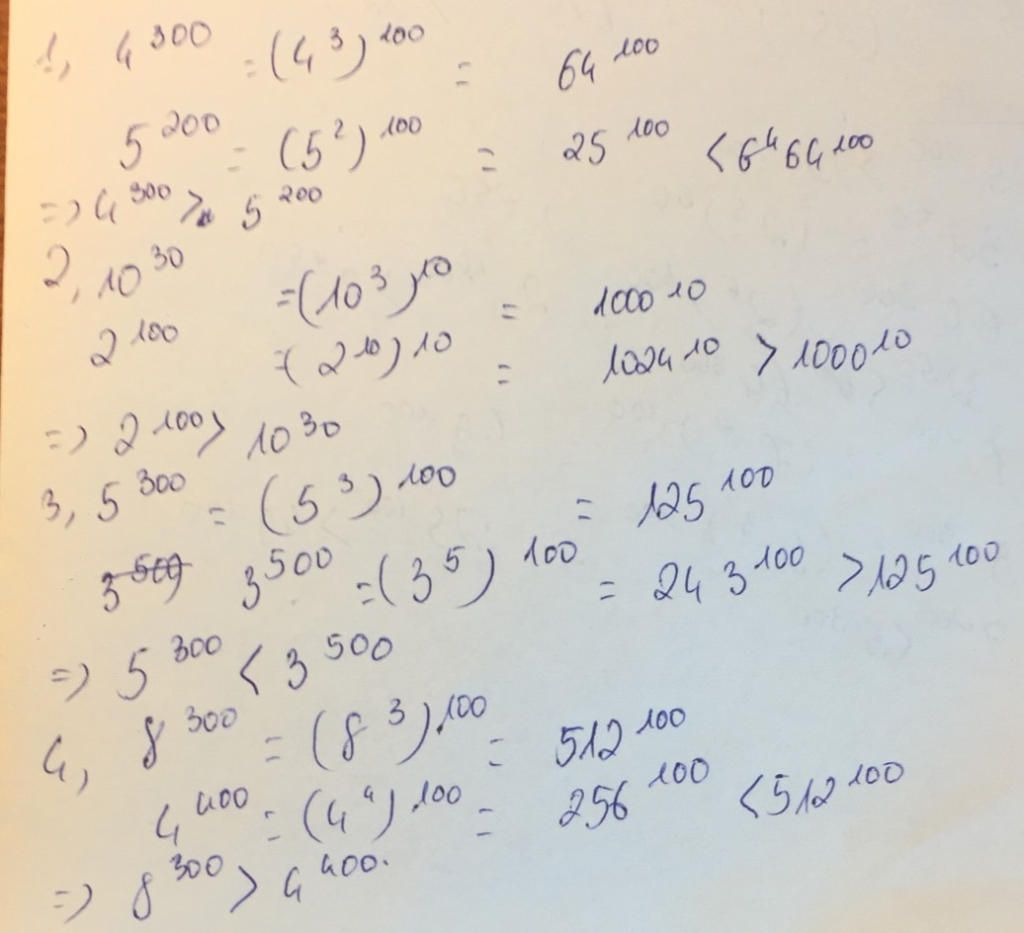 1, 4^300 = (4^3)^100 = 64^100
5^200 = (5^2)^100 = 25^100 < 6^4 64^100
=> 4^300 > 5^200
2, 10^30 = (10^3)^10 = 1000^10
2^100 = (2^10)^10 = 1024^10 > 1000^10
=> 2^100 > 10^30
3, 5^300 = (5^3)^100 = 125^100
3^500 3^500 = (3^5)^100 = 243^100 > 125^100
=> 5^300 < 3^500
4, 8^300 = (8^3)^100 = 512^100
4^400 = (4^4)^100 = 256^100 < 512^100
=> 8^300 > 4^400.